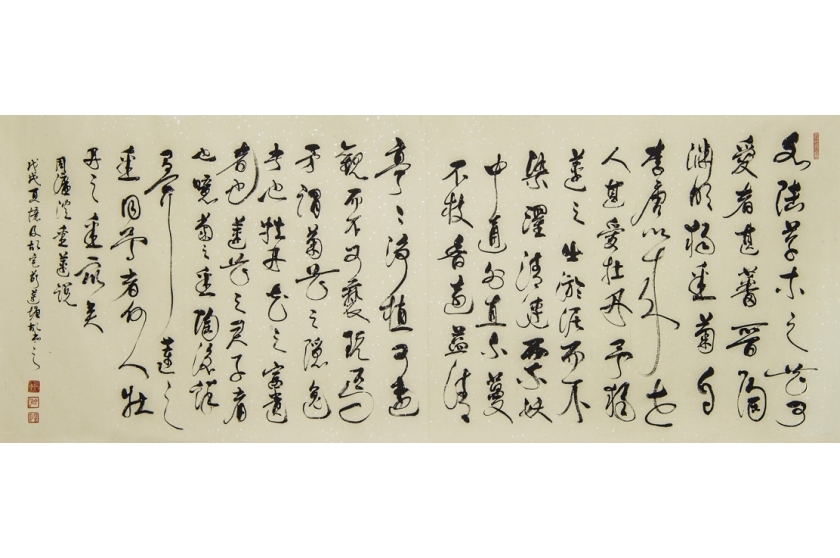 水陸草木之花可
愛者甚蕃晋陶
淵明獨愛菊自
李唐以來世
人甚愛牡丹予獨
蓮之出於泥而不
染濯清漣而不妖
中通外直不蔓
不枝香遠益清
亭〻淨植可遠
觀而不可褻玩焉
予謂菊花之隱逸
者也牡丹花之富貴
者也蓮花之君子者
也噫菊之愛陶後鮮
有聞蓮之
愛同予者何人牡
丹之愛矣
周濂溪愛蓮說
戊戌夏